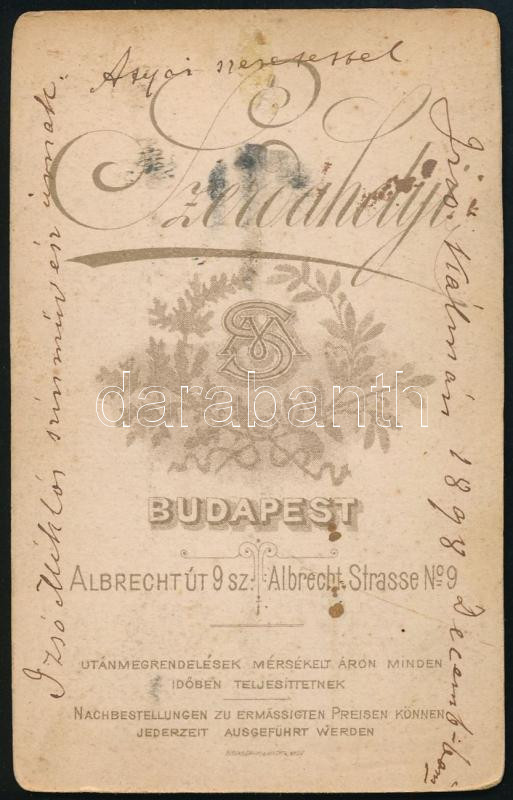 Izsó Miklós színművész úrnak.
Atyai szeretettel
Kálmán 1898 Decemberben
Szerdahelyi
BUDAPEST
ALBRECHT ÚT 9 SZ. Albrecht-Strasse No 9
UTÁNMEGRENDELÉSEK MÉRSÉKELT ÁRON MINDEN
IDŐBEN TELJESÍTTETNEK
NACHBESTELLUNGEN ZU ERMÄSSIGTEN PREISEN KÖNNEN
JEDERZEIT AUSGEFÜHRT WERDEN
darabanth